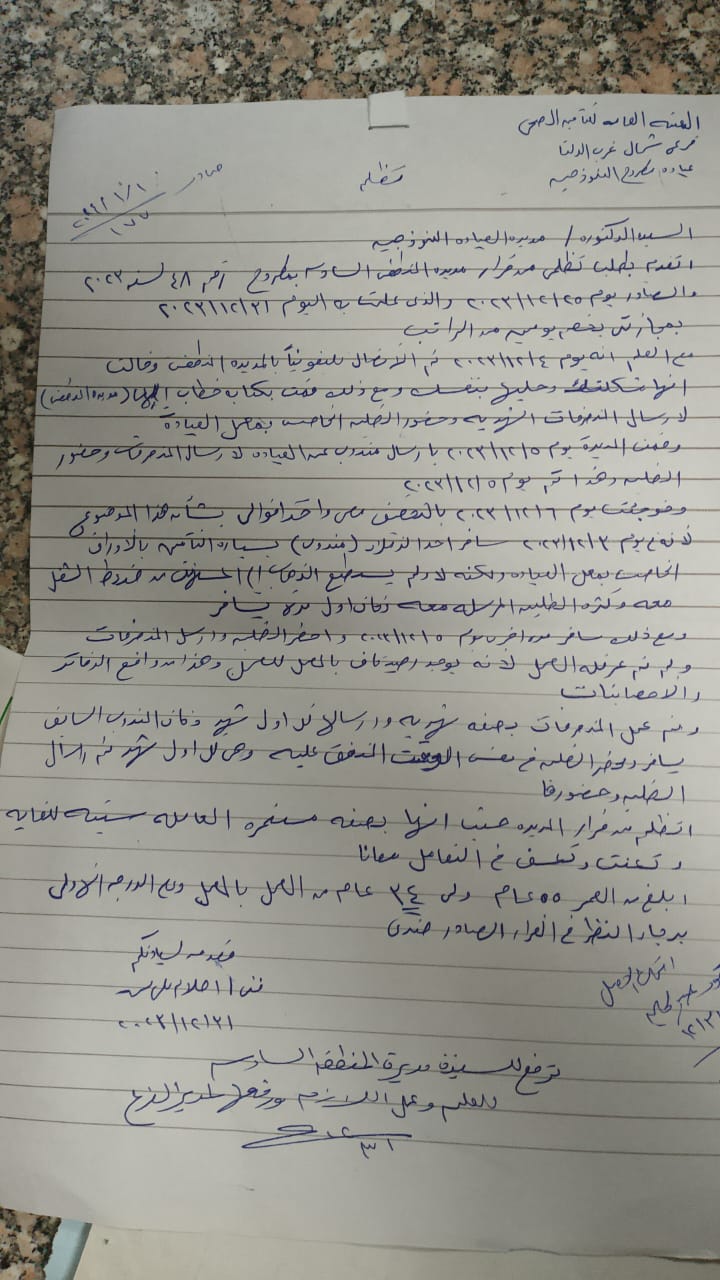 الهيئه العامه للتأمين الصحى
فرع شمال غرب الدلتا
عياده مطروح النموذجيه
تظلم
صادر
١٧٧
السيده الدكتوره / مديره العياده النموذجيه
اتقدم بطلب تظلمى من قرار مديره المنطقه السادسه بمطروح رقم ٤٨ لسنه ٢٠٢٣
والصادر يوم ٢٠٢٣/١٢/٢٥ والذى علمت به اليوم ٢٠٢٣/١٢/٣١
بمجازاتى بخصم يومين من الراتب
مع العلم انه يوم ٢٠٢٣/١٢/٤ تم الاتصال تليفونياً بالمديره المنطقه وقالت
انها مشكلتك وحليها بنفسك ومع ذلك قمت بكتابه خطاب اليها (مديره المنطقه)
لارسال المنصرفات الشهريه وحضور الطلبيه الخاصه بمعمل العيادة
وقمت المديرة يوم ٢٠٢٣/١٢/٥ بارسال مندوب من العياده لارسال المنصرفات وحضور
الطلبيه وهذا تم يوم ٢٠٢٣/١٢/٥
وفوجئت يوم ٢٠٢٣/١٢/٦ بالتحقيق معى واخذ اقوالى بشأن هذا الموضوع
لانه يوم ٢٠٢٣/١٢/٣ سافر احد الزملاء (مندوب) بسياره التأمين بالاوراق
الخاصه بمعمل العياده ولكنه لا ولم يستطع الذهاب الى المخازن من ضغوط الشغل
معه وكثره الطلبيه المرسله معه وكان اول مره يسافر
ومع ذلك سافر مره اخرى يوم ٢٠٢٣/١٢/٥ واحضر الطلبيه وارسل المنصرفات
ولم تتم عرقله العمل لانه يوجد رصيد كاف بالمعمل للعمل وهذا من واقع الدفاتر
والاحصائيات
ويتم عمل المنصرفات بصفه شهريه وارسالها كل اول شهر وكان المندوب السابق
يسافر ويحضر الطلبيه فى نفس الوقت المتفق عليه وهى كل اول شهر تم ارسال
الطلبيه وحضورها
اتظلم من قرار المديره حيث انها بصفه مستمره المعامله سيئه للغايه
وتعنت وتعسف فى التعامل معانا
ابلغ من العمر ٥٥ عام ولى ٣٤ عام من العمل بالمعمل ومع الدرجه الاولى
برجاء النظر فى القرار الصادر ضدى
مقدمه لسيادتكم
فنى / احلام
٢٠٢٣/١٢/٣١
ترفع للسيدة مديرة المنطقه السادسه
للعلم وعمل اللازم ورفعها لمدير الفرع